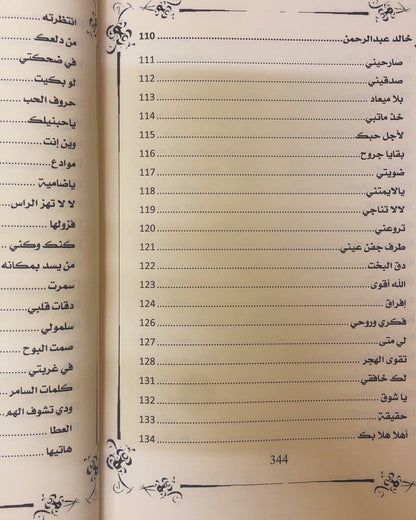 خالد عبدالرحمن 110
صارحيني 111
صدقيني 112
بلا ميعاد 113
خذ ماتبي 114
لأجل حبك 115
بقايا جروح 116
ضويتي 117
يالايمتني 118
لالا تناجي 119
تروعني 120
طرف جفن عيني 121
دق البخت 122
الله أقوى 123
إفراق 124
فكري وروحي 126
لي متى 127
تقوى الهجر 128
لك خافقي 131
يا شوق 132
حقيقة 133
أهلا هلا بك 134
344
انتظرته
من دلعك
في ضحكتي
لو بكيت
حروف الحب
ياحبنيلك
وين إنت
موادع
ياضامية
لا لا تهز الراس
قزولها
كنك وكني
من يسد بمكانه
سمرت
دقات قلبي
سلمولي
صمت البوح
في غربتي
كلمات السامر
ودي تشوف الهم
العطا
هاتيها